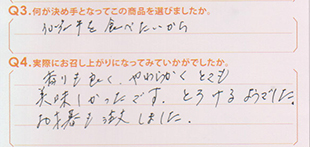 Q3.何が決め手となってこの商品を選びましたか。
を食べたいから
Q4.実際にお召し上がりになってみていかがでしたか。
香りも良く、やわらかくとても
美味しかったです。とろけるようでした。
お歳暮も注文しました。